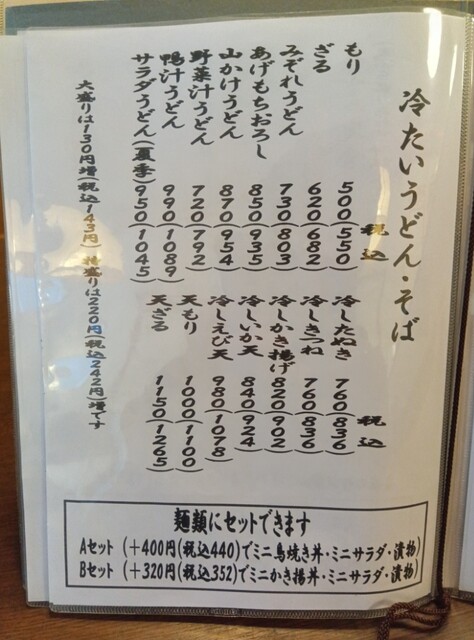 冷たいうどん・そば
税込
もり 500(550)
ざる 620(682)
みぞれうどん 730(803)
あげもちおろし 850(935)
山かけうどん 870(954)
野菜汁うどん 720(792)
鴨汁うどん 990(1089)
サラダうどん(夏季) 950(1045)
税込
冷したぬき 760(836)
冷しきつね 760(836)
冷しかき揚げ 820(902)
冷しいか天 840(924)
冷しえび天 980(1078)
天もり 1000(1100)
天ざる 1150(1265)
大盛りは130円増(税込143円) 特盛りは220円(税込242円)増です
麺類にセットできます
Aセット (+400円(税込440)でミニ鳥焼き丼・ミニサラダ・漬物)
Bセット (+320円(税込352)でミニかき揚丼・ミニサラダ・漬物)